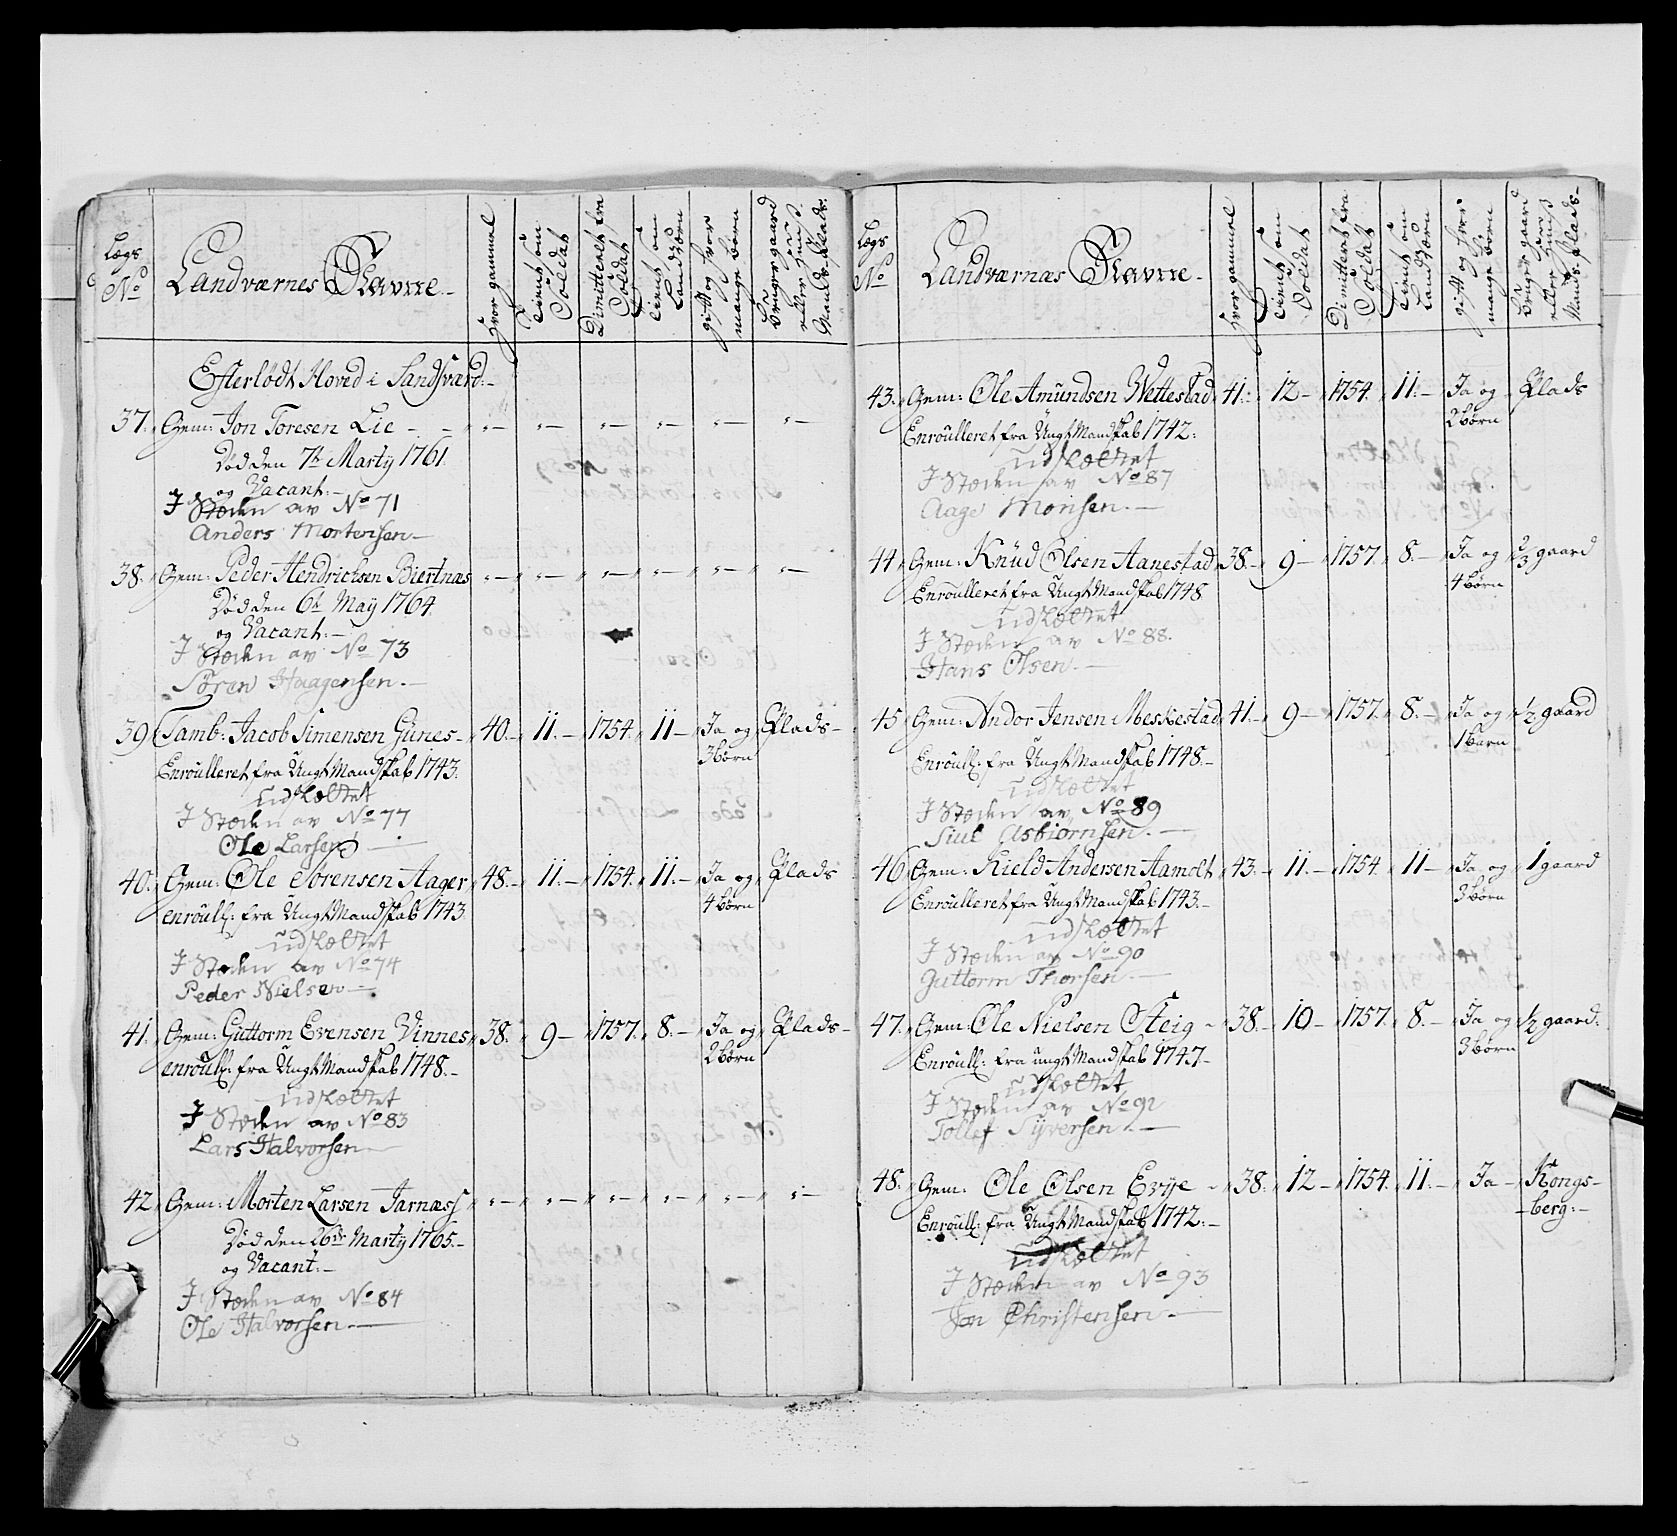 Lægs No
Landværnes Navne.
Hvor gammel
Tient som Soldat
Dimitteret fra Soldat
Tient som Landværn
gift og hvor mange børn
bruger gaard eller Huus Mands Plads.
Efterlødt Hoved i Sandsværd:
37. Gem: Jon Toresen Lie - - „ - „ - „ - „ - „ - „ -
Død den 7de Marty 1761
og Vacant:-
I Stæden av No 71
Anders Mortensen-
38. Gem: Peder Hendrichsen Biertnæs „ - „ - „ - „ - „ - „ -
Død den 6te May 1764
og Vacant:-
I Stæden av No 73
Søren Haagensen.-
39 Tamb: Jacob Simensen Gunes- 40.- 11.- 1754. 11- Ja og Plads-
3 børn
Enroulleret fra Ungt Mandskab 1743.
udslættet
I Stæden av No 77
Ole Larsen
40. Gem: Ole Sørensen Aager 48.- 11.- 1754. 11.- Ja og Plads
4 børn
enroull: fra Ungt Mandskab 1743
udslættet
I Stæden av No 74
Peder Nielsen
41. Gem: Guttorm Evensen Vinnes 38. 9- 1757. 8.- Ja og Plads-
2 børn
enroull: fra Ungt Mandskab 1748.-
udslættet
I Stæden av No 83
Lars Halvorsen
42 Gem: Morten Larsen Jarnæss „ - „ - „ - „ - „ - „ -
Død den 26de Marty 1765.-
og Vacant:-
I Stæden av No 84
Ole Halvorsen.-
Lægs No
Landværnæs Navne-
Hvor gammel
Tient som Soldat
Dimitteret fra Soldat
Tient som Landværn
gift og hvor mange børn
bruger gaard eller Huus Mands plads-
43. Gem: Ole Amundsen Wettestad 41.- 12- 1754. 11.- Ja og Plads
2 børn
Enroulleret fra Ungt Mandskab 1742.
udslættet
I Stæden av No 87
Aage Monsen.-
44 Gem: Knud Olsen Aanestad 38.- 9- 1757. 8.- Ja og 2/3 gaard
4 børn
Enroulleret fra Ungt Mandskab 1748
udslættet
I Stæden av No 88.
Hans Olsen.-
45 Gem: Andor Jensen Meskestad 41.- 9- 1757. 8.- Ja og 1/2 gaard
1 barn
Enroull: fra Ungt Mandskab 1748.-
udslættet
I Stæden av No 89
Siul Asbiørnsen.-
46 Gem: Kield Andersen Aamolt 43.- 11.- 1754 11- Ja og 1 gaard
3 børn
Enroulleret fra Ungt Mandskab 1743.-
udslættet
I Stæden av No 90
Guttorm Thorsen.-
47. Gem: Ole Nielsen Steig - 38.- 10- 1757. 8.- Ja og 1/2 gaard.
3 børn
Enroull: fra ungt Mandskab 1747-
udslættet
I Stæden av No 92
Tollef Syversen.-
48. Gem: Ole Olsen Evye - 38. 12- 1754. 11.- Ja- Kongs-
-berg:-
Enroull: fra Ungt Mandskab 1742:-
udslættet
I Stæden av No 93
Jon Christensen-